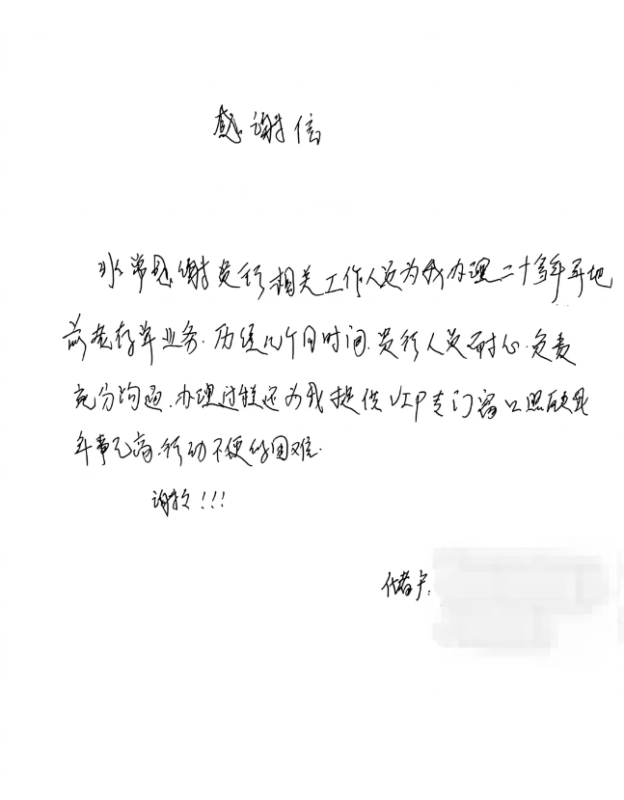 感谢信
非常感谢贵行相关工作人员为我办理二十多年异地
前老存单业务.历经几个月时间.贵行人员耐心.负责
充分沟通.办理过程还为我提供VIP专门窗口照顾我
年事已高.行动不便的困难.
谢谢!!!
储户.